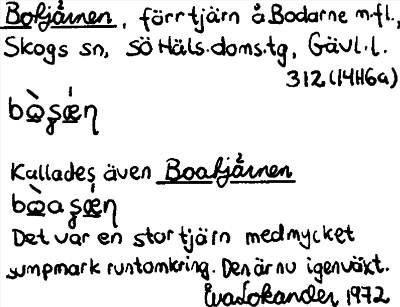 Botjärnen, förr tjärn å Bodarne m.fl.,
Skogs sn, SÖ Häls. doms.tg, Gävl. l.
312 (14H6a)
Kallades även Boatjärnen
Det var en stor tjärn med mycket
sumpmark runtomkring. Den är nu igenväxt.
Eva Lokander 1972